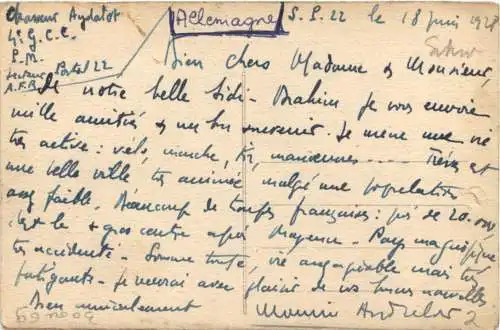 Chasseur Aydalot
4e G.C.C.
P.M.
Secteur Postal 22
A.F.B.
Allemagne
S.P. 22 le 18 juin 1928
Bien chers Madame & Monsieur,
De notre belle Sidi-Brahim je vous envoie
mille amitiés & un bon souvenir. Je mène une vie
très active : vélo, marche, tir, manœuvres .... Trèves est
une belle ville très animée malgré une population
assez faible. Beaucoup de troupes françaises : près de 20.000
c'est le + gros centre après Mayence. Pays magnifique
très accidenté. Somme toute vie agréable mais très
fatigante. Je recevrai avec plaisir de vos bonnes nouvelles
Bien amicalement